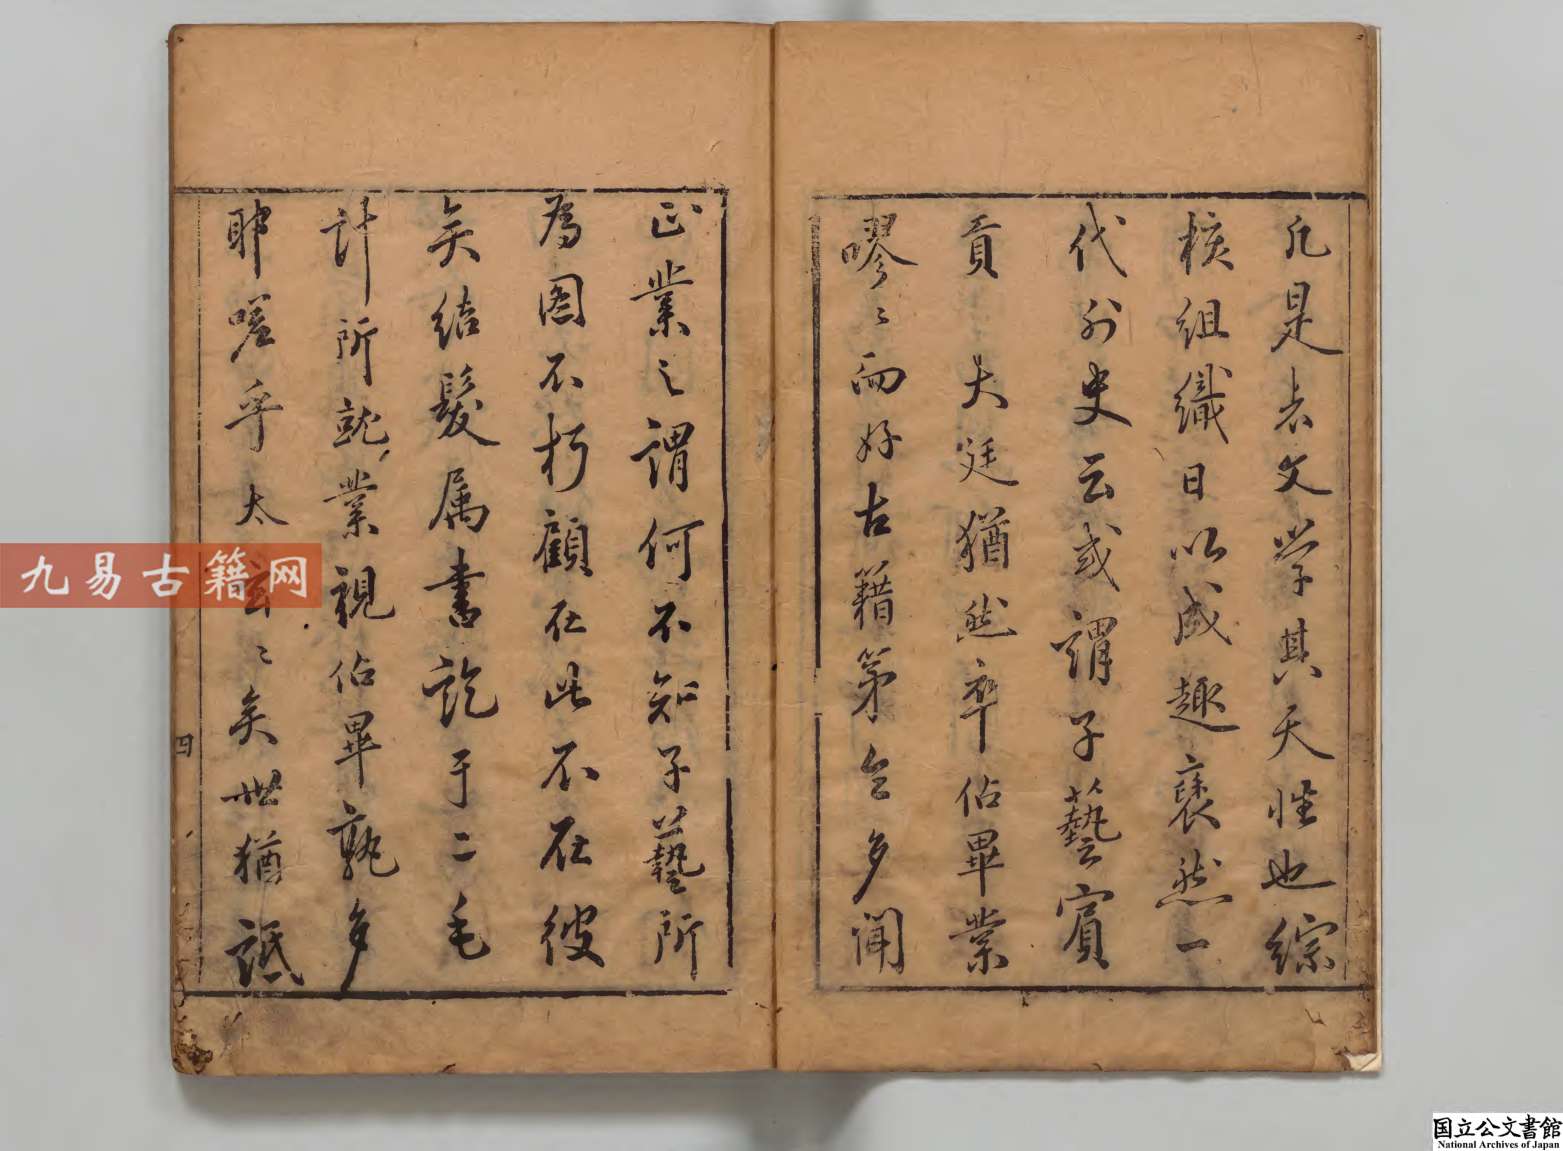 凡是者文学其天性也綜
核組織日以成趣褎然一
代外史云或謂子藝賓
貢大廷猶然卒佔畢業
嘐〻而好古籍第令多聞
正業之謂何不知子藝所
為圖不朽顧在此不在彼
矣結髮属書訖于二毛
計所就業視佔畢孰多
耶嗟乎太玄〻矣世猶詆
四
九易古籍网
国立公文書館
National Archives of Japan